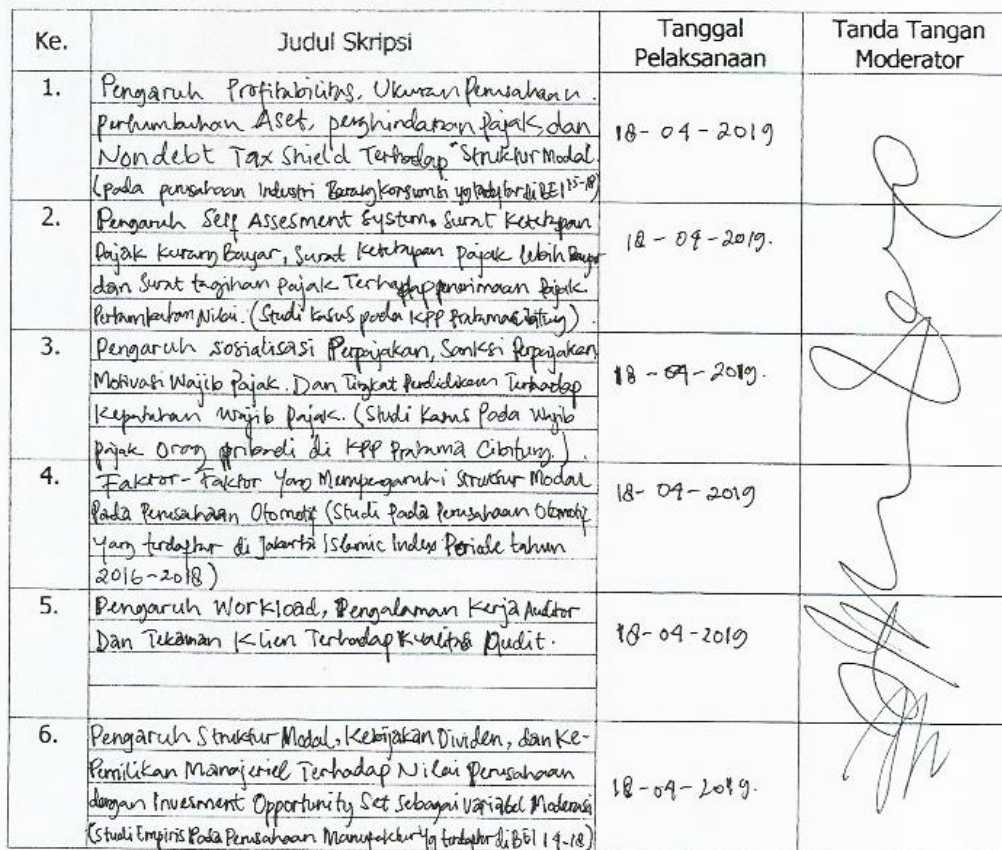 Ke.
Judul Skripsi
Tanggal Pelaksanaan
Tanda Tangan Moderator
1.
Pengaruh Profitabilitas, Ukuran Perusahaan.
pertumbuhan Aset, penghindaran Pajak, dan
Nondebt Tax Shield Terhadap Struktur Modal.
(pada perusahaan Industri Barang Konsumsi yg terdaftar di BEI 15-18)
18-04-2019
2.
Pengaruh Self Assesment System, Surat Ketetapan
Pajak Kurang Bayar, Surat Ketetapan Pajak lebih Bayar
dan Surat tagihan Pajak Terhadap penerimaan Pajak
Pertambahan Nilai. (Studi kasus pada KPP Pratama Cibitung)
18-04-2019.
3.
Pengaruh sosialisasi Perpajakan, Sanksi Perpajakan,
Motivasi Wajib Pajak. Dan Tingkat Pendidikan Terhadap
Kepatuhan wajib Pajak. (Studi Kasus Pada Wajib
pajak Orang pribadi di KPP Pratama Cibitung.)
18-04-2019.
4.
Faktor-Faktor Yang Mempengaruhi Struktur Modal
Pada Perusahaan Otomotif (Studi Pada Perusahaan Otomotif
Yang terdaftar di Jakarta Islamic Index Periode tahun
2016-2018)
18-04-2019
5.
Pengaruh Workload, Pengalaman Kerja Auditor
Dan Tekanan Klien Terhadap Kualitas Audit.
18-04-2019
6.
Pengaruh Struktur Modal, Kebijakan Dividen, dan Ke-
Pemilikan Manajeriel Terhadap Nilai Perusahaan
dengan Invesment Opportunity Set Sebagai variabel Moderasi
(Studi Empiris Pada Perusahaan Manufaktur Yg terdaftar di BEI 14-18)
18-04-2019.